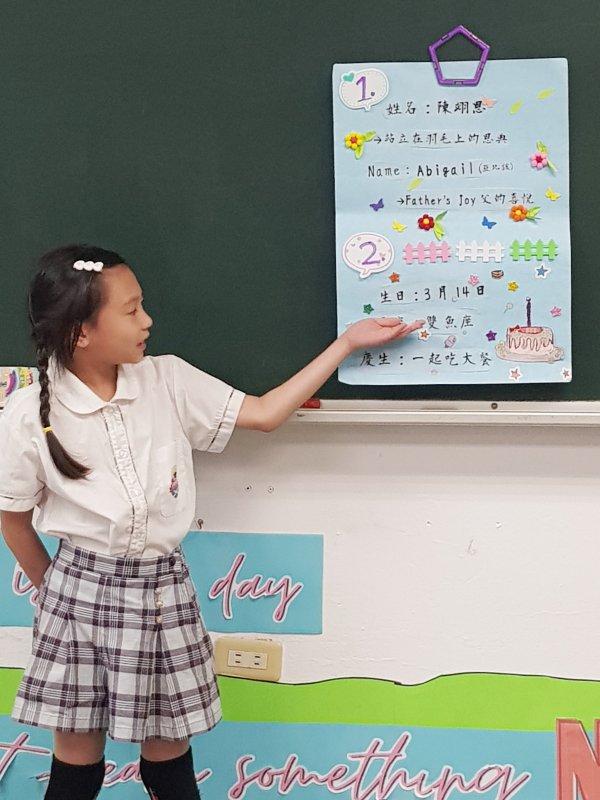 1.
姓名：陳翊恩
→站立在羽毛上的恩典
Name: Abigail (亞比該)
→Father's Joy 父的喜悅
2.
生日：3月14日
雙魚座
慶生：一起吃大餐
day
learn something
N